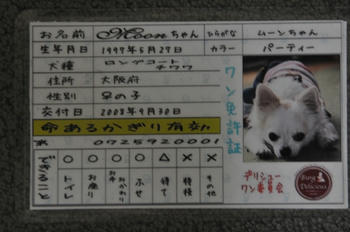 お名前 Moonちゃん ひらがな ムーンちゃん
生年月日 1997年5月27日 カラー パーティー
犬種 ロングコートチワワ
住所 大阪府
性別 女の子
交付日 2008年9月30日
命あるかぎり有効
0725920001
ワン免許証
できること ○ ○ ○ ○ △ × ×
トイレ お座り お手 おかわり ふせ 待て 特技 その他
デリシュー
ワン委員会
Delicious